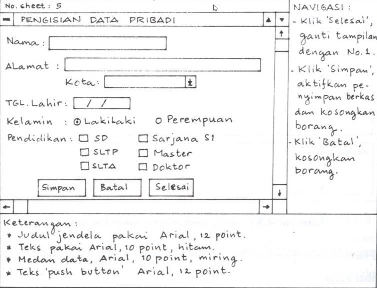 No. sheet : 5
PENGISIAN DATA PRIBADI
Nama :
ALamat :
Kota :
TGL. Lahir : / /
Kelamin : Lakilaki Perempuan
Pendidikan : SD Sarjana S1
SLTP Master
SLTA Doktor
Simpan Batal Selesai
NAVIGASI :
- Klik 'Selesai',
ganti tampilan
dengan No.1.
- Klik 'Simpan',
aktifkan pe-
nyimpan berkas
dan kosongkan
borang.
- Klik 'Batal',
kosongkan
borang.
Keterangan :
* Judul jendela pakai Arial, 12 point.
* Teks pakai Arial, 10 point, hitam.
* Medan data, Arial, 10 point, miring.
* Teks 'push button' Arial, 12 point.